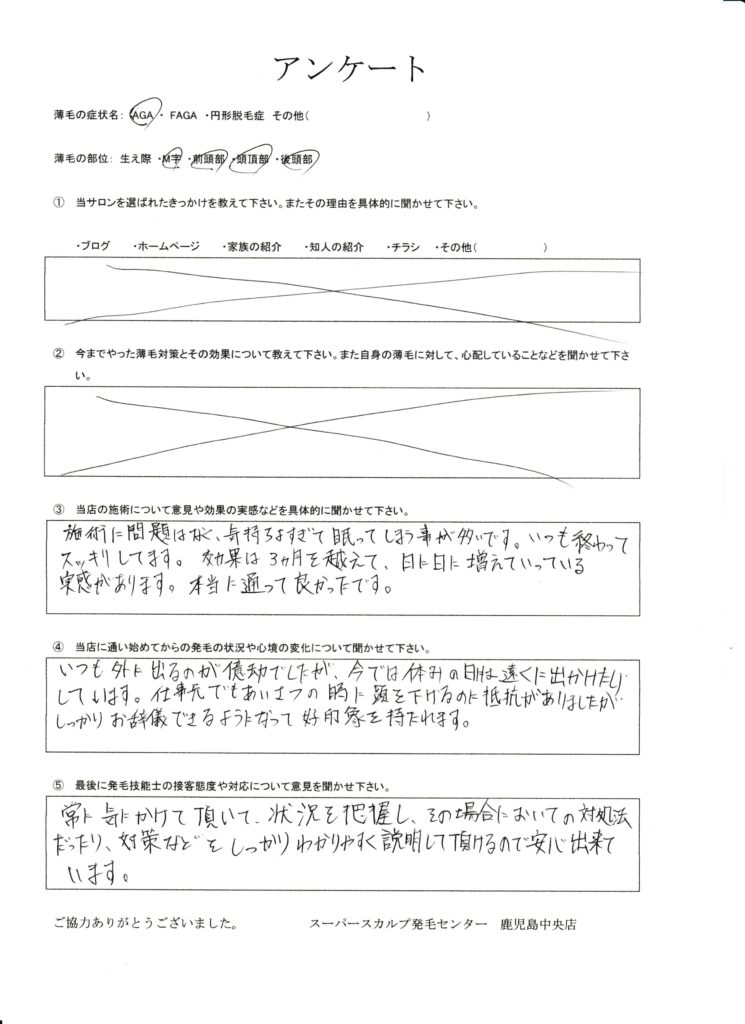 アンケート
薄毛の症状名: AGA ・ FAGA ・円形脱毛症 その他( )
薄毛の部位: 生え際 ・M字 ・前頭部 ・頭頂部 ・後頭部
① 当サロンを選ばれたきっかけを教えて下さい。またその理由を具体的に聞かせて下さい。
・ブログ ・ホームページ ・家族の紹介 ・知人の紹介 ・チラシ ・その他( )
② 今までやった薄毛対策とその効果について教えて下さい。また自身の薄毛に対して、心配していることなどを聞かせて下さ
い。
③ 当店の施術について意見や効果の実感などを具体的に聞かせて下さい。
施術に問題はなく、気持ちよすぎて眠ってしまう事が多いです。いつも終わって
スッキリしてます。 効果は3ヵ月を越えて、日に日に増えていっている
実感があります。本当に通って良かったです。
④ 当店に通い始めてからの発毛の状況や心境の変化について聞かせて下さい。
いつも外に出るのが億劫でしたが、今では休みの日は遠くに出かけたり
しています。仕事先でもあいさつの時に頭を下げるのに抵抗がありましたが
しっかりお辞儀できるようになって好印象を持たれます。
⑤ 最後に発毛技能士の接客態度や対応について意見を聞かせ下さい。
常に気にかけて頂いて、状況を把握し、その場合においての対処法
だったり、対策などをしっかりわかりやすく説明して頂けるので安心出来て
います。
ご協力ありがとうございました。 スーパースカルプ発毛センター 鹿児島中央店